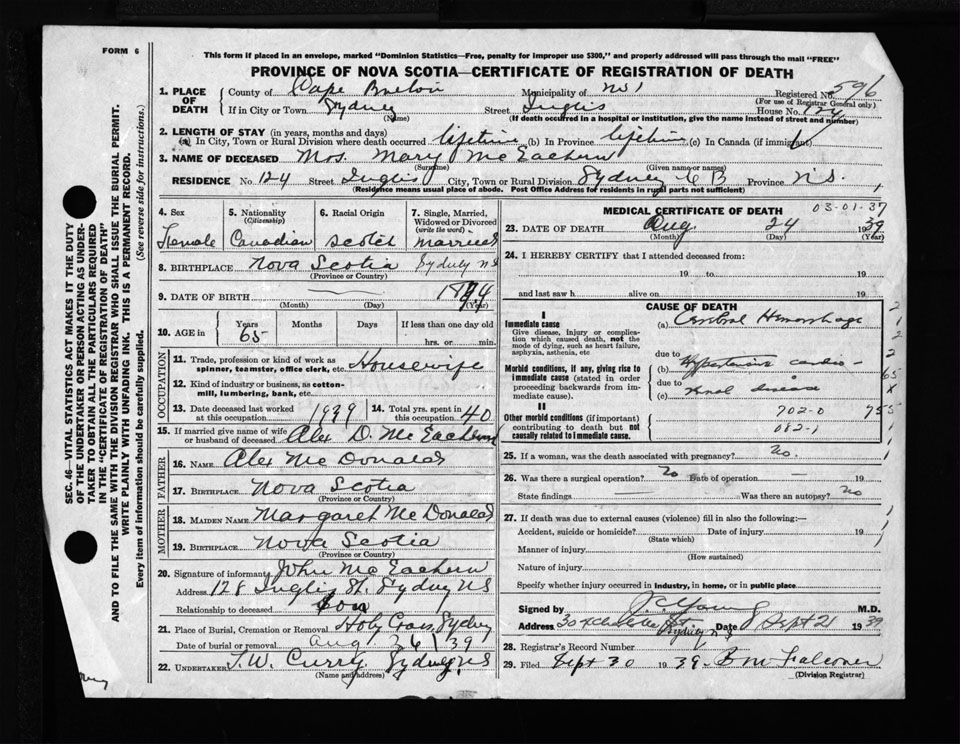 FORM 6
This form if placed in an envelope, marked "Dominion Statistics—Free, penalty for improper use $300," and properly addressed will pass through the mail "FREE"
PROVINCE OF NOVA SCOTIA—CERTIFICATE OF REGISTRATION OF DEATH
1. PLACE OF DEATH
County of Cape Breton Municipality of No 1 Registered No. 596
(For use of Registrar General only)
If in City or Town Sydney Street Inglis House No. 124
(Name) (If death occurred in a hospital or institution, give the name instead of street and number)
2. LENGTH OF STAY (in years, months and days)
(a) In City, Town or Rural Division where death occurred lifetime (b) In Province lifetime (c) In Canada (if immigrant)
3. NAME OF DECEASED Mrs. Mary McEachern
(Surname) (Given name or names)
RESIDENCE No. 124 Street Inglis City, Town or Rural Division Sydney C B Province N.S.
(Residence means usual place of abode. Post Office Address for residents in rural parts not sufficient)
SEC. 46—VITAL STATISTICS ACT MAKES IT THE DUTY
OF THE UNDERTAKER OR PERSON ACTING AS UNDER-
TAKER TO OBTAIN ALL THE PARTICULARS REQUIRED
IN THE "CERTIFICATE OF REGISTRATION OF DEATH"
AND TO FILE THE SAME WITH THE DIVISION REGISTRAR WHO SHALL ISSUE THE BURIAL PERMIT.
WRITE PLAINLY WITH UNFADING INK. THIS IS A PERMANENT RECORD.
Every item of information should be carefully supplied. (See reverse side for instructions.)
4. Sex 5. Nationality (Citizenship) 6. Racial Origin 7. Single, Married, Widowed or Divorced (write the word)
Female Canadian Scotch Married
8. BIRTHPLACE Nova Scotia Sydney NS
(Province or Country)
9. DATE OF BIRTH 1874
(Month) (Day) (Year)
10. AGE in Years Months Days If less than one day old
65 hrs. or min.
OCCUPATION
11. Trade, profession or kind of work as spinner, teamster, office clerk, etc. Housewife
12. Kind of industry or business, as cotton-mill, lumbering, bank, etc.
13. Date deceased last worked at this occupation 1939 14. Total yrs. spent in this occupation 40
15. If married give name of wife or husband of deceased Alex D. McEachern
FATHER
16. NAME Alex McDonald
17. BIRTHPLACE Nova Scotia
(Province or Country)
MOTHER
18. MAIDEN NAME Margaret McDonald
19. BIRTHPLACE Nova Scotia
(Province or Country)
20. Signature of informant John McEachern
Address 128 Inglis St. Sydney NS
Relationship to deceased Son
21. Place of Burial, Cremation or Removal Holy Cross, Sydney
Date of burial or removal Aug 26/39
22. UNDERTAKER T.W. Curry Sydney NS
(Name and address)
MEDICAL CERTIFICATE OF DEATH 03-01-37
23. DATE OF DEATH Aug 24 1939
(Month) (Day) (Year)
24. I HEREBY CERTIFY that I attended deceased from:
19 to 19
and last saw h alive on 19
CAUSE OF DEATH
I
Immediate cause (a) Cerebral Hemorrhage
Give disease, injury or complication which caused death, not the mode of dying, such as heart failure, asphyxia, asthenia, etc
due to
Morbid conditions, if any, giving rise to immediate cause (stated in order proceeding backwards from immediate). (b) Hypertensive cardio
due to
(c) renal disease
II
Other morbid conditions (if important) contributing to death but not causally related to immediate cause.
702-0
082-1
25. If a woman, was the death associated with pregnancy? No.
26. Was there a surgical operation? No Date of operation 19
State findings Was there an autopsy? No
27. If death was due to external causes (violence) fill in also the following:—
Accident, suicide or homicide? Date of injury 19
(State which)
Manner of injury
(How sustained)
Nature of injury
Specify whether injury occurred in industry, in home, or in public place
Signed by Young M.D.
Address Sydney N S Date Sept 21 1939
28. Registrar's Record Number
29. Filed Sept 30 1939. B M Falconer
(Division Registrar)